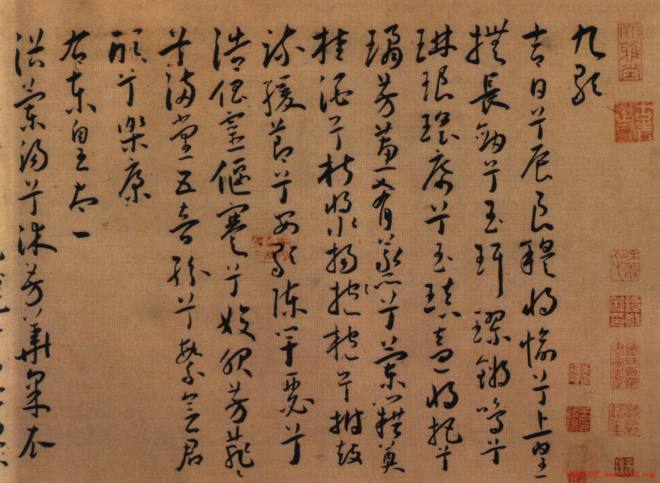 九歌
吉日兮辰良穆將愉兮上皇
撫長劍兮玉珥璆鏘鳴兮
琳琅瑤席兮玉瑱盍將把兮
瓊芳蕙肴蒸兮蘭籍奠
桂酒兮椒漿揚枹兮拊鼓
疏緩節兮安歌陳竽瑟兮
浩倡靈偃蹇兮姣服芳菲〻
兮滿堂五音紛兮繁會君
欣兮樂康
右東皇太一
浴蘭湯兮沐芳華采衣